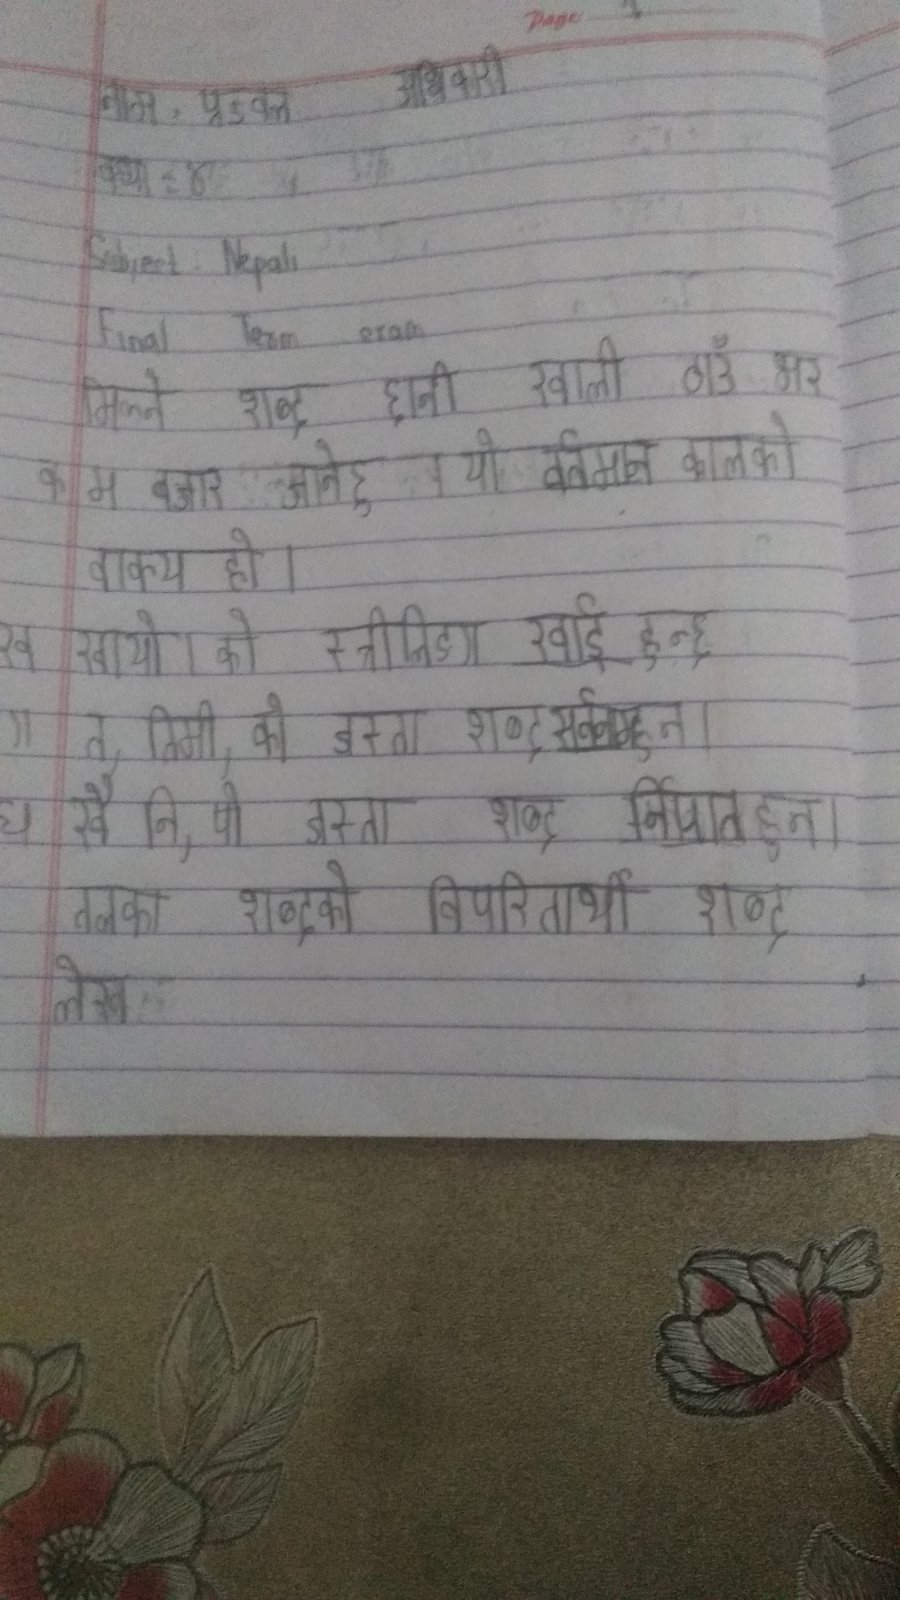 Page
नाम : अधिकारी
कक्षा : ४
Subject : Nepali
Final Term exam
मिल्ने शब्द छानी खाली ठाउँ भर
क म बजार जानेछु । यो वर्तमान कालको
वाक्य हो ।
ख खायो । को स्त्रीलिङग खाई हुन्छ
ग त, तिमी, को जस्ता शब्द सर्वनाम हुन ।
घ खै नि, पो जस्ता शब्द निपात हुन ।
तलका शब्दको विपरितार्थी शब्द
लेख